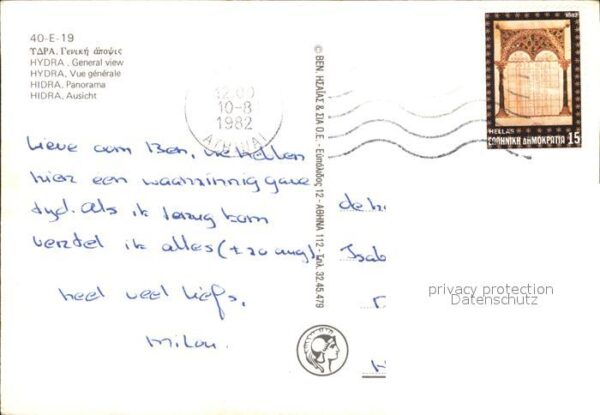 40-E-19
ΥΔΡΑ. Γενική άποψις
HYDRA. General view
HYDRA, Vue générale
HIDRA, Panorama
HIDRA, Ausicht
12.00
10-8
1982
ΑΘΗΝΑΙ
1982
HELLAS
ΕΛΛΗΝΙΚΗ ΔΗΜΟΚΡΑΤΙΑ 15
© ΒΕΝ. ΗΣΑΪΑΣ & ΣΙΑ Ο.Ε. - Ευπαλίδος 12 - ΑΘΗΝΑ 112 - Τηλ. 32.45.479
Lieve oom Ben, we hebben
hier een waanzinnig gave
tyd. Als ik terug kom
vertel ik alles (+ 20
heel veel liefs,
Milou.
de h
Isab
privacy protection
Datenschutz